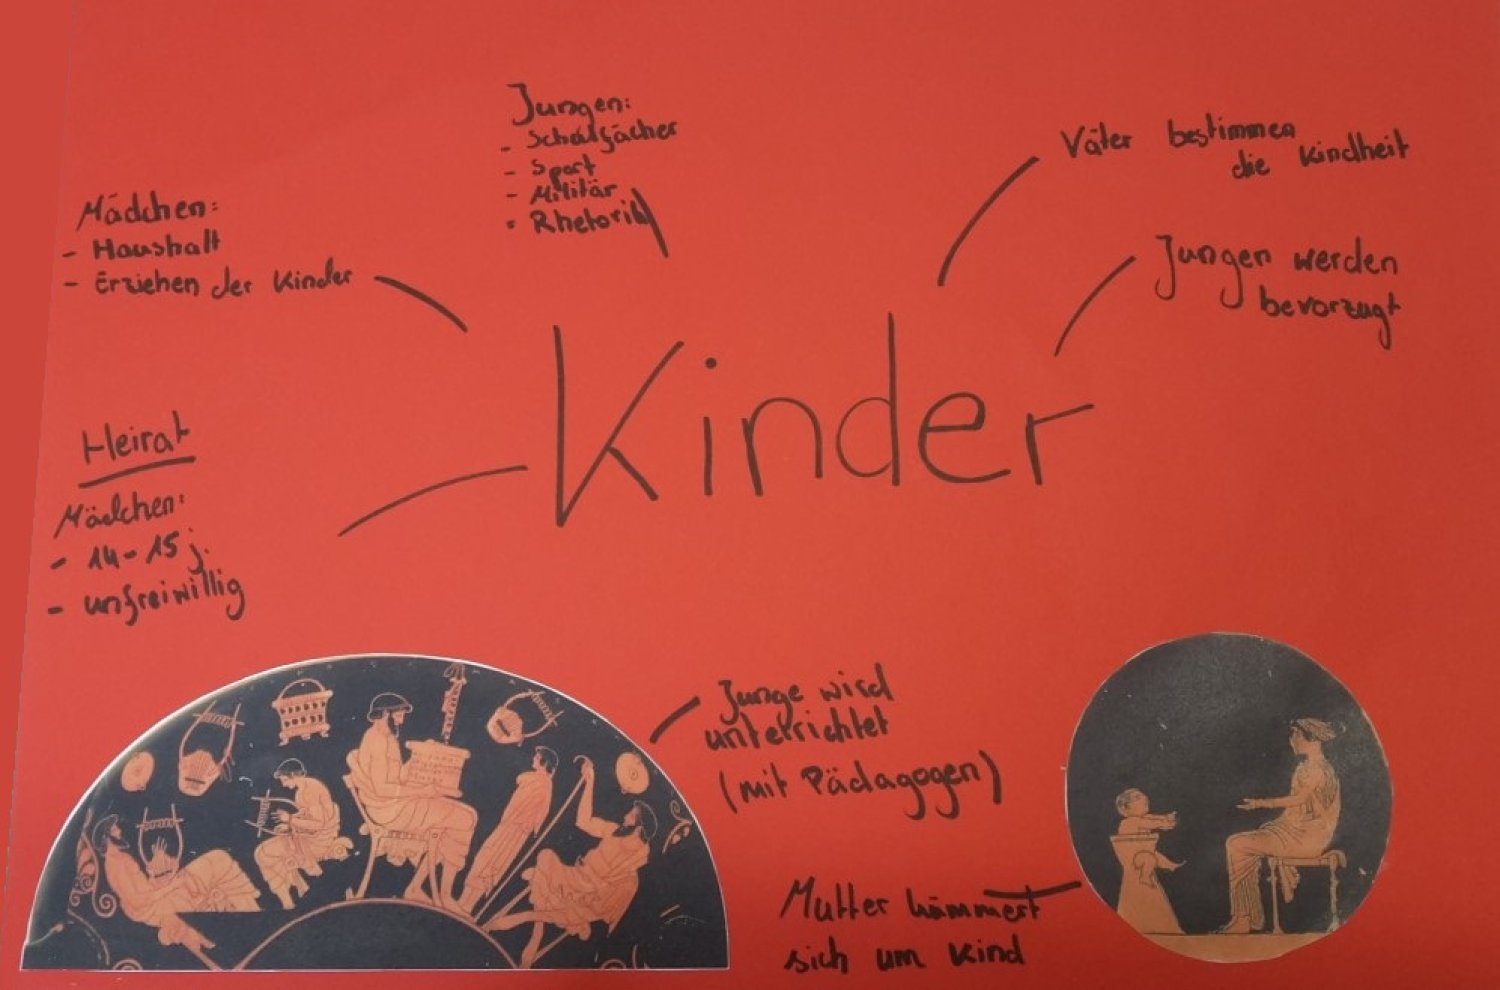 Jungen:
- Schulfächer
- Sport
- Militär
- Rhetorik
Väter bestimmen
die Kindheit
Mädchen:
- Haushalt
- Erziehen der Kinder
Jungen werden
bevorzugt
Kinder
Heirat
Mädchen:
- 14-15 j.
- unfreiwillig
Junge wird
unterrichtet
(mit Pädagogen)
Mutter kümmert
sich um Kind